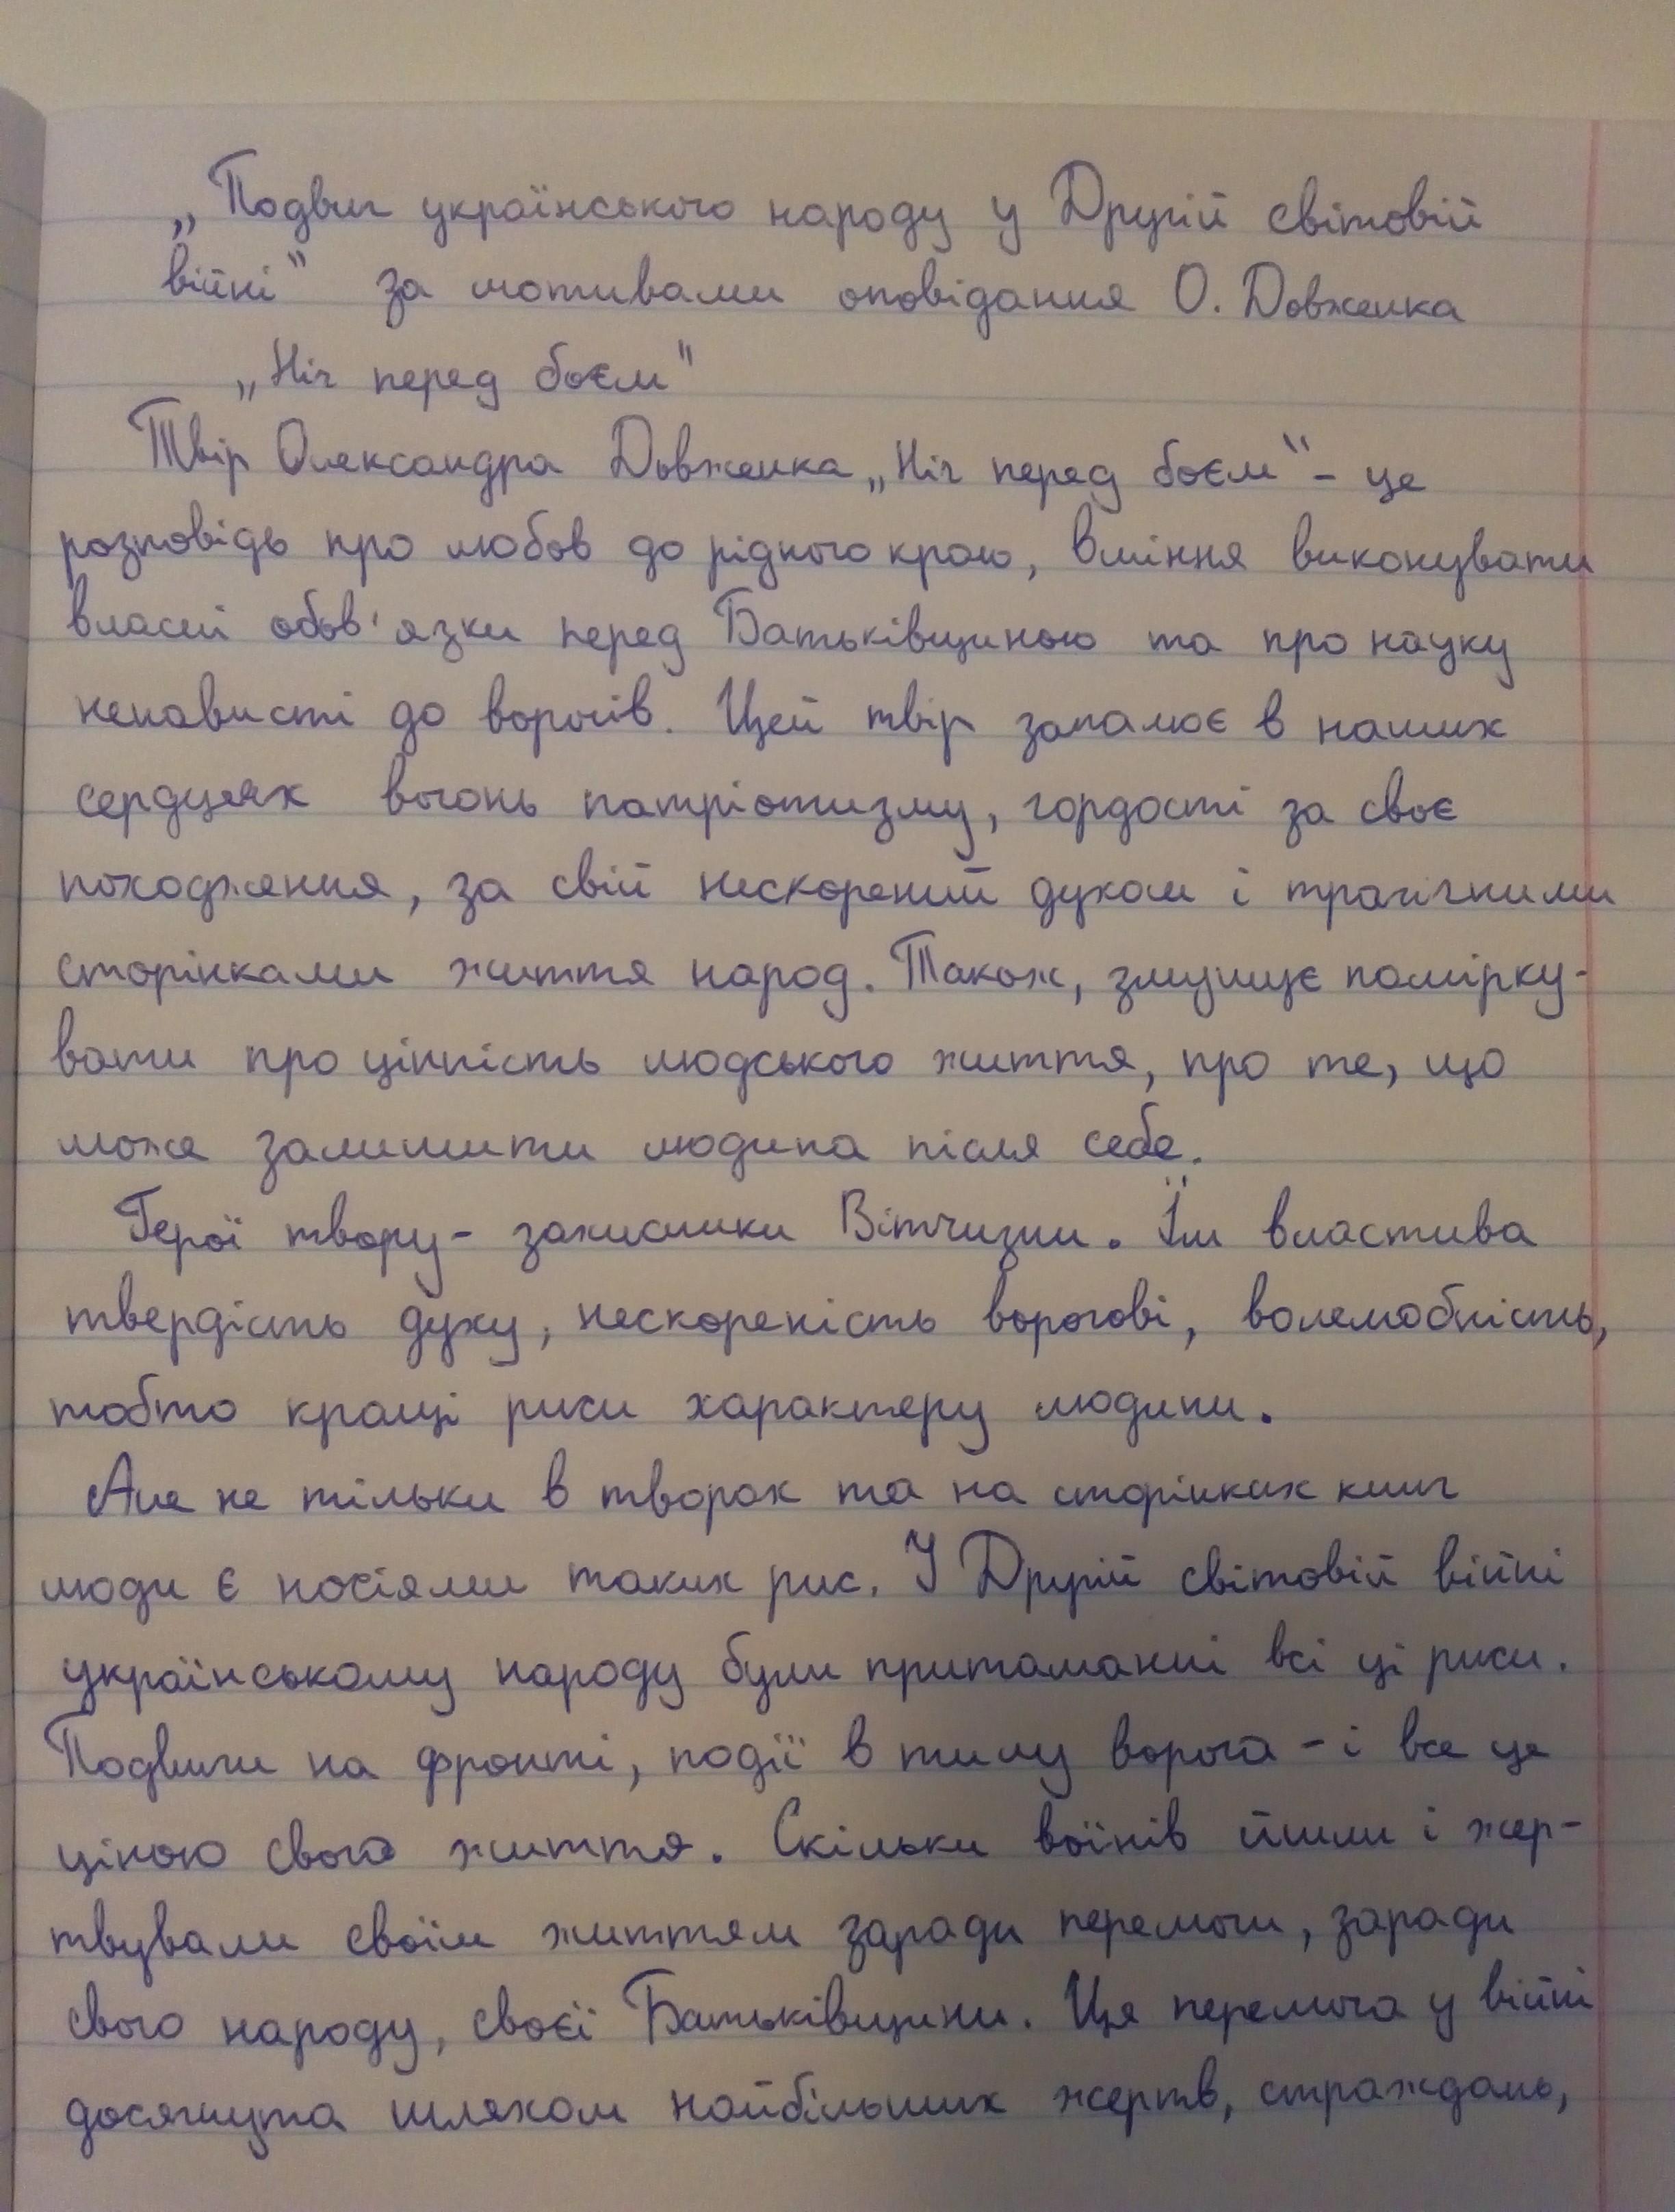 „Подвиг українського народу у Другій світовій
війні" за мотивами оповідання О. Довженка
„Ніч перед боєм"
Твір Олександра Довженка „Ніч перед боєм" - це
розповідь про любов до рідного краю, вміння виконувати
власні обов'язки перед Батьківщиною та про науку
ненависті до ворогів. Цей твір запалює в наших
серцях вогонь патріотизму, гордості за своє
походження, за свій нескорений духом і трагічними
сторінками життя народ. Також, змушує помірку-
вати про цінність людського життя, про те, що
може залишити людина після себе.
Герої твору - захисники Вітчизни. Їм властива
твердість духу, нескореність ворогові, волелюбність,
тобто кращі риси характеру людини.
Але не тільки в творах та на сторінках книг
люди є носіями таких рис. У Другій світовій війні
українському народу були притаманні всі ці риси.
Подвиги на фронті, події в тилу ворога - і все це
ціною свого життя. Скільки воїнів йшли і жер-
твували своїм життям заради перемоги, заради
свого народу, своєї Батьківщини. Ця перемога у війні
досягнута шляхом найбільших жертв, страждань,